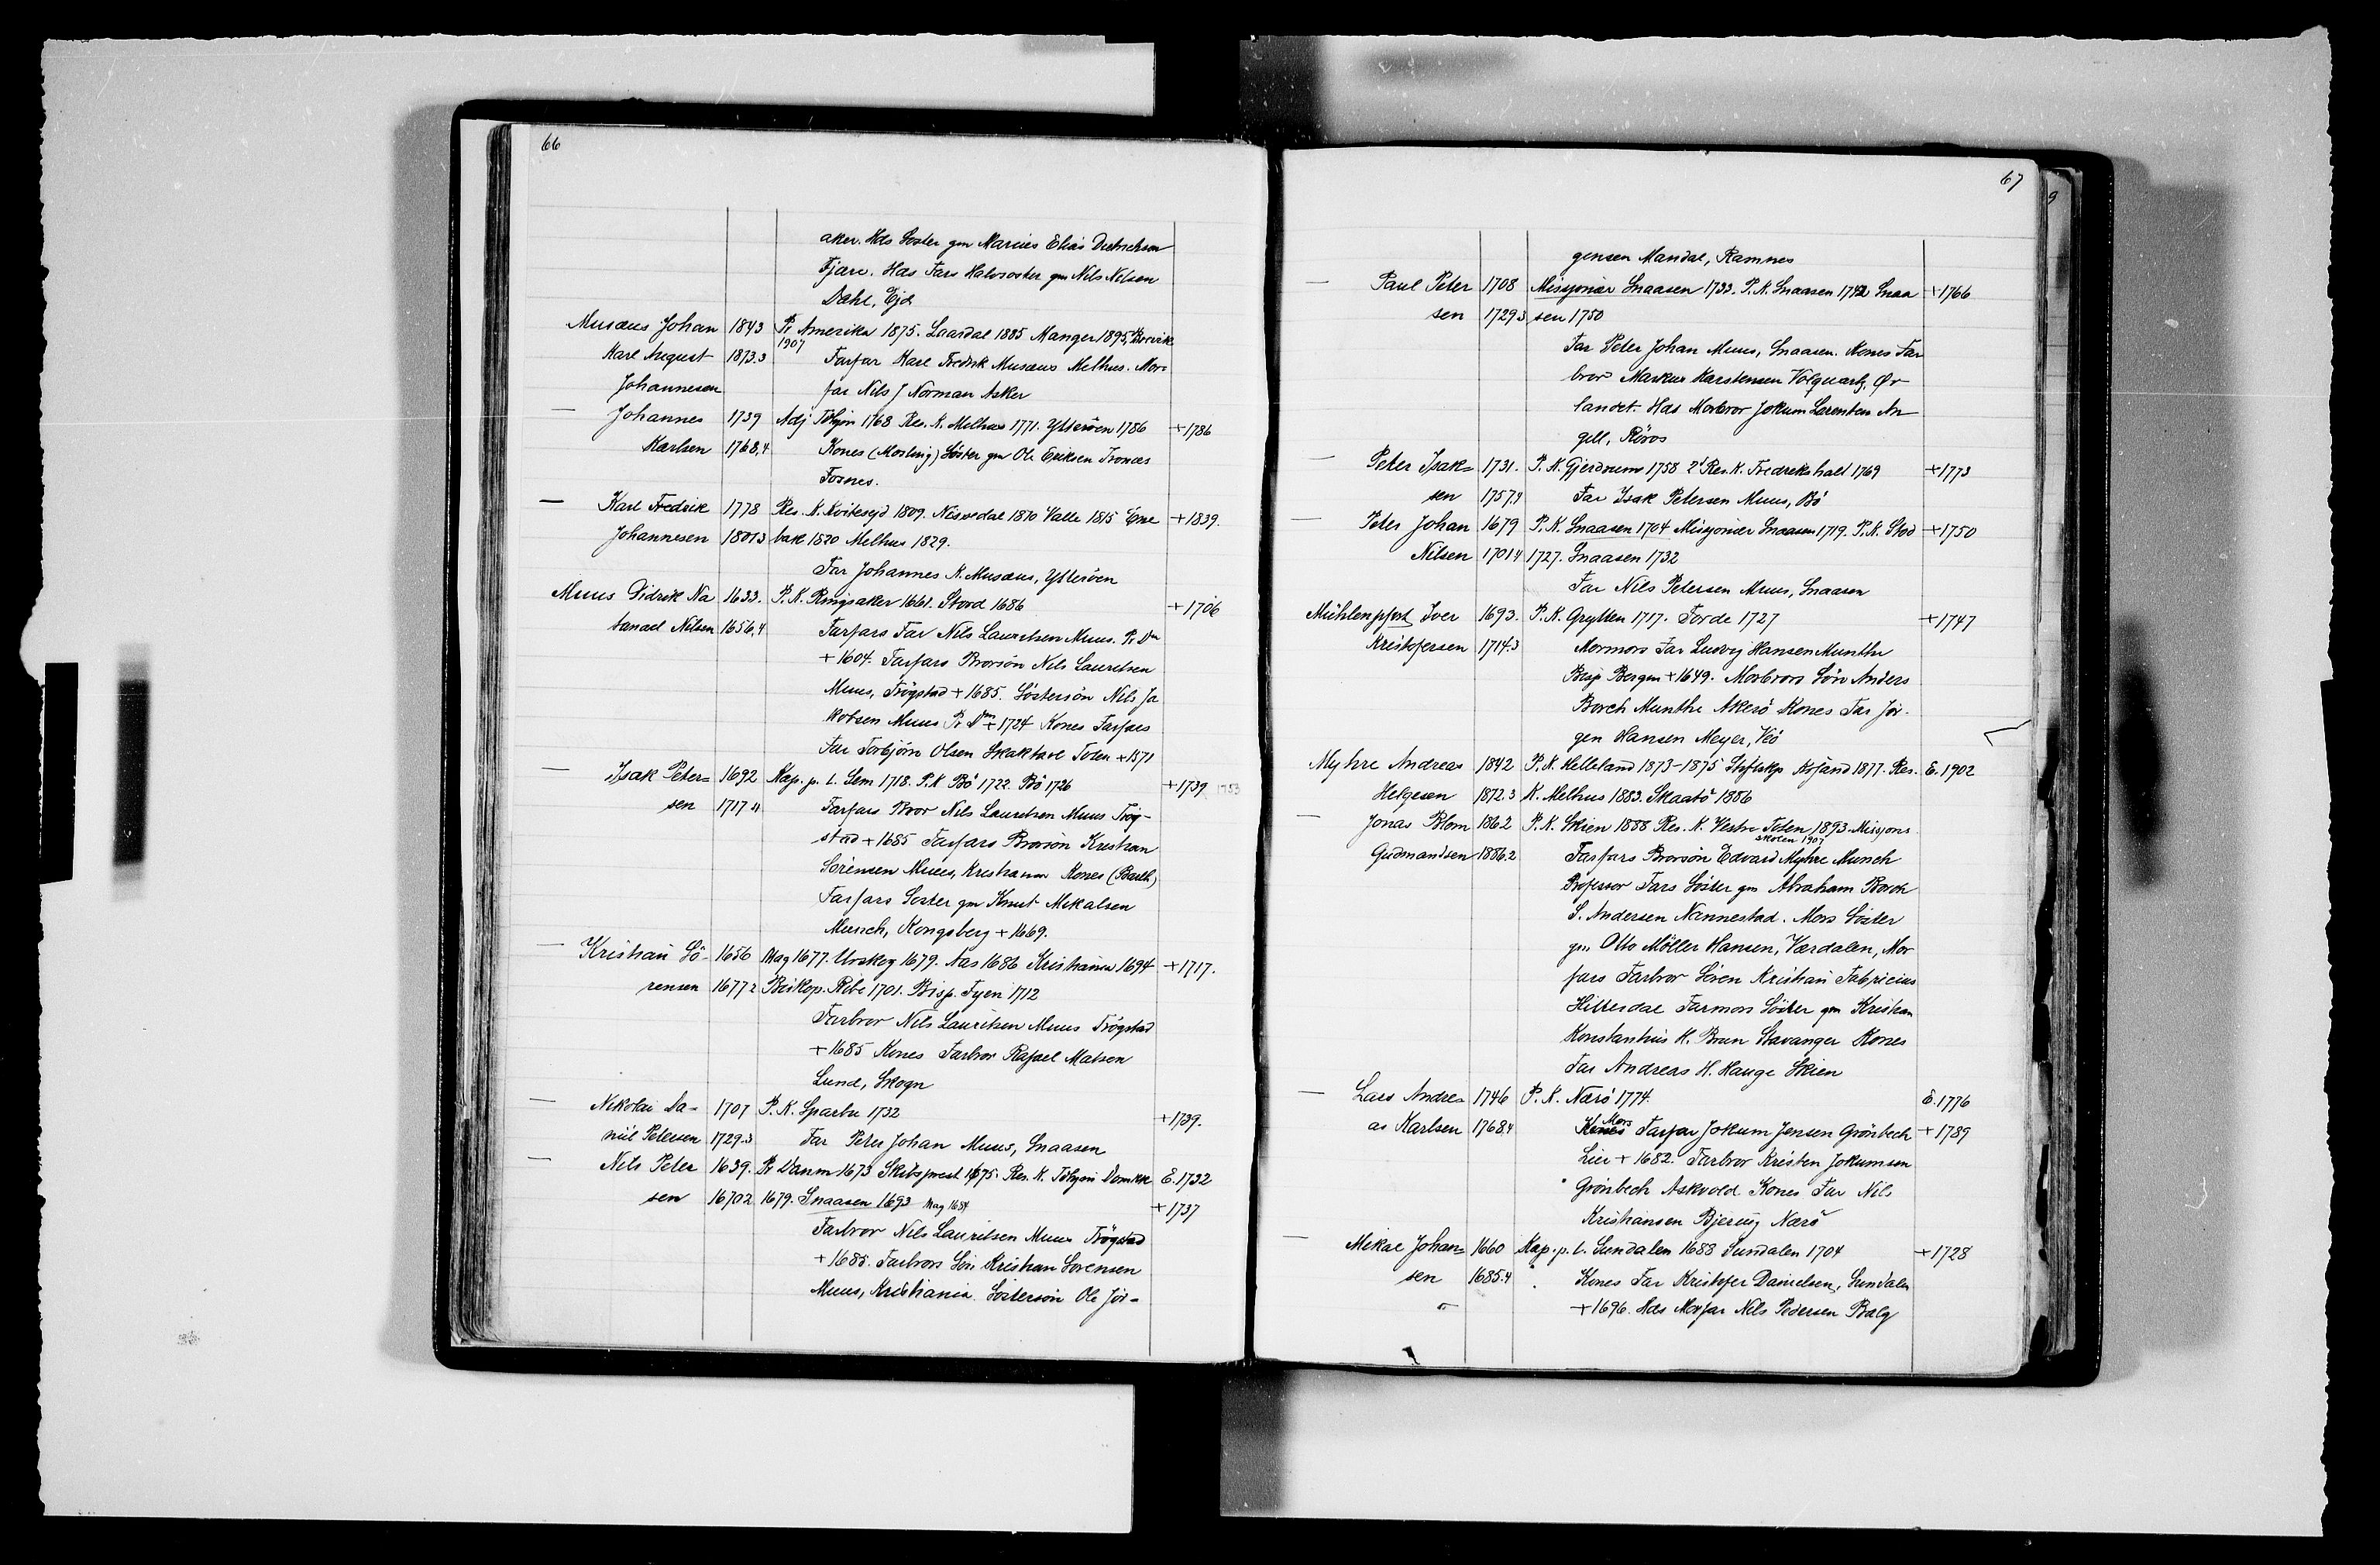 66
aker. Hds Søster gm Marius Elias Diedrichsen
Fjære. Hds Fars Halvsøster gm Nils Nilsen
Dahl, Ejd
Musæus Johan 1843 Pr Amerika 1875. Laardal 1885 Manger 1895, Brevik
1907
Karl August 1873.3 Farfar Karl Fredrik Musæus Melhus. Mor-
Johannesen far Nils J Norman Asker
— Johannes 1739 Adj Tthjm 1768 Res. K. Melhus 1771. Ytterøen 1786 +1786
Karlsen 1768,4 Kones (Mosling) Søster gm Ole Eriksen Tronæs
Fosnes.
— Karl Fredrik 1778 Res. K. Kvitesejd 1809. Nissedal 1810 Valle 1815 Ene +1839.
Johannesen 1801.3 bak 1820 Melhus 1829.
Far Johannes K. Musæus, Ytterøen
Muus Didrik Na 1633. P. K. Ringsaker 1661. Stord 1686 +1706
tanael Nilsen 1656,4 Farfars Far Nils Lauritsen Muus. Pr Dm
+1604. Farfars Brorsøn Nils Lauritsen
Muus, Trøgstad +1685. Søstersøn Nils Ja
kobsen Muus Pr Dm +1724 Kones Farfars
Far Torbjørn Olsen Skaktavl Toten +1571
— Isak Peter= 1692 Kap. p. l. Sem 1718. P. K Bø 1722. Bø 1726 +1739 1753
sen 1717.4 Farfars Bror Nils Lauritsen Muus Trøg-
stad +1685 Farfars Brorsøn Kristian
Sørensen Muus, Kristiania Kones (Barth)
Farfars Søster gm Knut Mikalsen
Munch, Kongsberg +1669.
— Kristian Sø- 1656 Mag 1677. Urskog 1679. Aas 1686 Kristiania 1694 +1717.
rensen 1677.2 Biskop. Ribe 1701. Bisp. Fyen 1712
Farbror Nils Lauritsen Muus Trøgstad
+1685 Kones Farbror Rafael Matsen
Lund, Skogn
— Nikolai Da- 1707 P. K. Sparbu 1732 +1739.
niel Petersen 1729.3 Far Peter Johan Muus, Snaasen
— Nils Peter 1639. Pr Danm 1673 Skibsprest 1675. Res. K. Tthjm Domkk E. 1732
sen 1670.2 1679. Snaasen 1693 Mag 1684 +1737
Farbror Nils Lauritsen Muus Trøgstad
+1685. Farbrors Søn Kristian Sørensen
Muus, Kristiania. Søstersøn Ole Jør-
67
9
gensen Mandal, Ramnes
— Paul Peter 1708 Missjonær Snaasen 1733. P. K. Snaasen 1742 Snaa +1766
sen 1729.3 sen 1750
Far Peter Johan Muus, Snaasen. Kones Far
bror Markus Karstensen Volquartz, Ør
landet. Hds Morbror Jokum Larentsen An
gell, Røros
— Peter Isak= 1731. P. K. Gjerdrum 1758 2' Res. K. Fredrikshald 1769 +1773
sen 1757,4 Far Isak Petersen Muus, Bø
— Peter Johan 1679 P. K. Snaasen 1704 Missjonær Snaasen 1719. P. K. Stod +1750
Nilsen 1701.4 1727. Snaasen 1732
Far Nils Petersen Muus, Snaasen
Mühlenpfort Iver 1693. P. K. Grytten 1717. Førde 1727 +1747
Kristofersen 1714.3 Mormors Far Ludvig Hansen Munthe
Bisp Bergen +1649. Morbrors Søn Anders
Borch Munthe Akerø Kones Far Jør-
gen Hansen Meyer, Veø
Myhre Andreas 1842 P. K. Helleland 1873-1875 Stiftskp Krsand 1877. Res. E. 1902
Helgesen 1872.3 K. Melhus 1883. Skaatø 1886
— Jonas Blom 1862 P. K. Skien 1888 Res. K. Vestre Toten 1893. Missjons
skolen 1907
Gudmandsen 1886.2 Farfars Brorsøn Edvard Myhre Munch
Professor Fars Søster gm Abraham Borch
S. Andersen Nannestad. Mors Søster
gm Otto Møller Hansen, Værdalen, Mor
fars Farbror Søren Kristian Fabricius
Hitterdal Farmors Søster gm Kristian
Konstantius H. Brun Stavanger Kones
Far Andreas H. Hauge Skien
— Lars Andre= 1746 P. K. Nærø 1774. E. 1776
as Karlsen 1768,4 Kones Mors Farfar Jokum Jensen Grønbech +1789
Lier +1682. Farbror Kristen Jokumsen
Grønbech Askvold Kones Far Nils
Kristiansen Bjerring Nærø
— Mikal Johan= 1660 Kap. p. l. Sundalen 1688 Sundalen 1704 +1728
sen 1685.4 Kones Far Kristofer Danielsen, Sundalen
+1696. Hds Morfar Nils Pedersen Balg